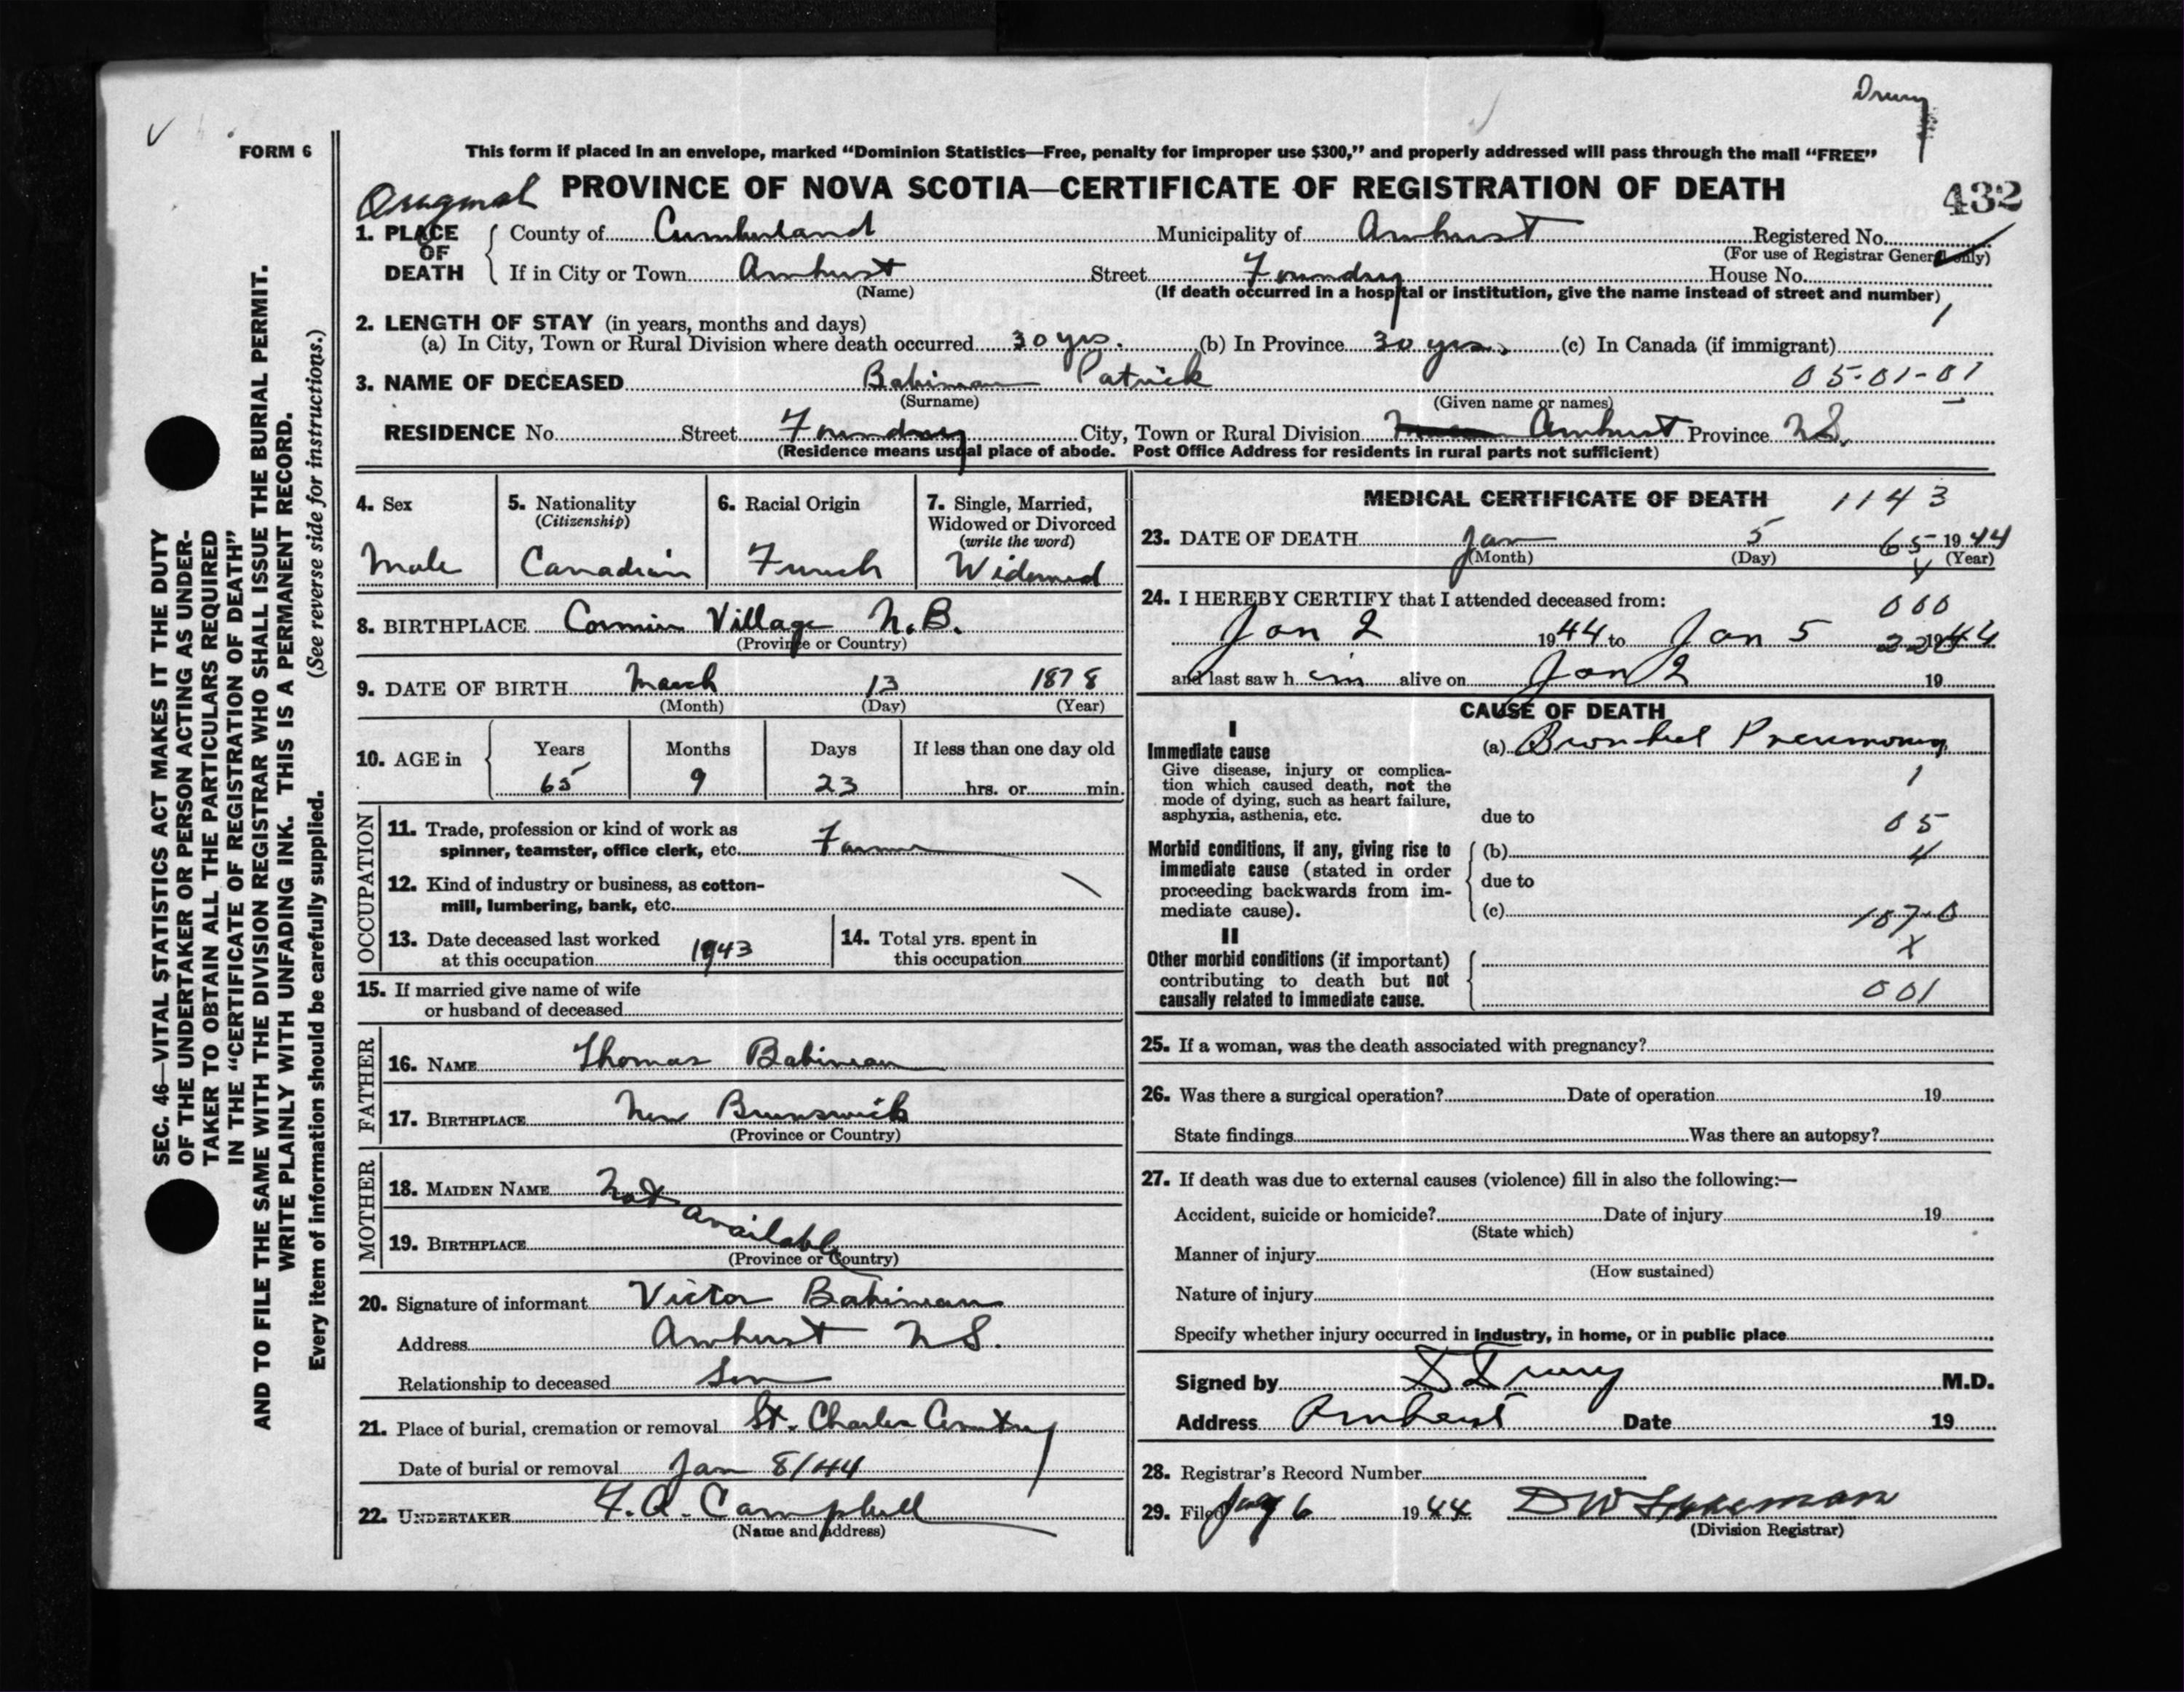 Drury
FORM 6
This form if placed in an envelope, marked “Dominion Statistics—Free, penalty for improper use $300,” and properly addressed will pass through the mail “FREE”
Original PROVINCE OF NOVA SCOTIA—CERTIFICATE OF REGISTRATION OF DEATH 432
1. PLACE OF DEATH County of Cumberland Municipality of Amherst Registered No.
(For use of Registrar General only)
If in City or Town Amherst Street Foundry House No.
(Name) (If death occurred in a hospital or institution, give the name instead of street and number)
2. LENGTH OF STAY (in years, months and days)
(a) In City, Town or Rural Division where death occurred 30 yrs. (b) In Province 30 yrs. (c) In Canada (if immigrant) 1
3. NAME OF DECEASED Babineau Patrick 05-01-01
(Surname) (Given name or names)
RESIDENCE No. Street Foundry City, Town or Rural Division Amherst Province N.S.
(Residence means usual place of abode. Post Office Address for residents in rural parts not sufficient)
4. Sex
Male
5. Nationality
(Citizenship)
Canadian
6. Racial Origin
French
7. Single, Married,
Widowed or Divorced
(write the word)
Widowed
8. BIRTHPLACE Cormier Village N.B.
(Province or Country)
9. DATE OF BIRTH March 13 1878
(Month) (Day) (Year)
10. AGE in Years Months Days If less than one day old
65 9 23 hrs. or min.
OCCUPATION
11. Trade, profession or kind of work as
spinner, teamster, office clerk, etc. Farmer
12. Kind of industry or business, as cotton-
mill, lumbering, bank, etc.
13. Date deceased last worked
at this occupation 1943
14. Total yrs. spent in
this occupation
15. If married give name of wife
or husband of deceased
FATHER
16. NAME Thomas Babineau
17. BIRTHPLACE New Brunswick
(Province or Country)
MOTHER
18. MAIDEN NAME Not
available
19. BIRTHPLACE
(Province or Country)
20. Signature of informant Victor Babineau
Address Amherst N.S.
Relationship to deceased Son
21. Place of burial, cremation or removal St. Charles Cemetery
Date of burial or removal Jan 8/44
22. UNDERTAKER F.A. Campbell
(Name and address)
MEDICAL CERTIFICATE OF DEATH 1143
23. DATE OF DEATH Jan 5 65 1944
(Month) (Day) (Year)
24. I HEREBY CERTIFY that I attended deceased from: 000
Jan 2 1944 to Jan 5 1944
and last saw h im alive on Jan 2 19
CAUSE OF DEATH
I
Immediate cause (a) Bronchial Pneumonia
Give disease, injury or complica-
tion which caused death, not the
mode of dying, such as heart failure,
asphyxia, asthenia, etc.
1
due to 05
Morbid conditions, if any, giving rise to
immediate cause (stated in order
proceeding backwards from im-
mediate cause).
(b) 4
due to
(c) 107-0
x
II
Other morbid conditions (if important)
contributing to death but not
causally related to immediate cause.
001
25. If a woman, was the death associated with pregnancy?
26. Was there a surgical operation? Date of operation 19
State findings Was there an autopsy?
27. If death was due to external causes (violence) fill in also the following:—
Accident, suicide or homicide? Date of injury 19
(State which)
Manner of injury
(How sustained)
Nature of injury
Specify whether injury occurred in industry, in home, or in public place
Signed by D Drury M.D.
Address Amherst Date 19
28. Registrar's Record Number
29. Filed 6 1944 D W
(Division Registrar)
SEC. 46—VITAL STATISTICS ACT MAKES IT THE DUTY
OF THE UNDERTAKER OR PERSON ACTING AS UNDER-
TAKER TO OBTAIN ALL THE PARTICULARS REQUIRED
IN THE “CERTIFICATE OF REGISTRATION OF DEATH”
AND TO FILE THE SAME WITH THE DIVISION REGISTRAR WHO SHALL ISSUE THE BURIAL PERMIT.
WRITE PLAINLY WITH UNFADING INK. THIS IS A PERMANENT RECORD.
Every item of information should be carefully supplied. (See reverse side for instructions.)